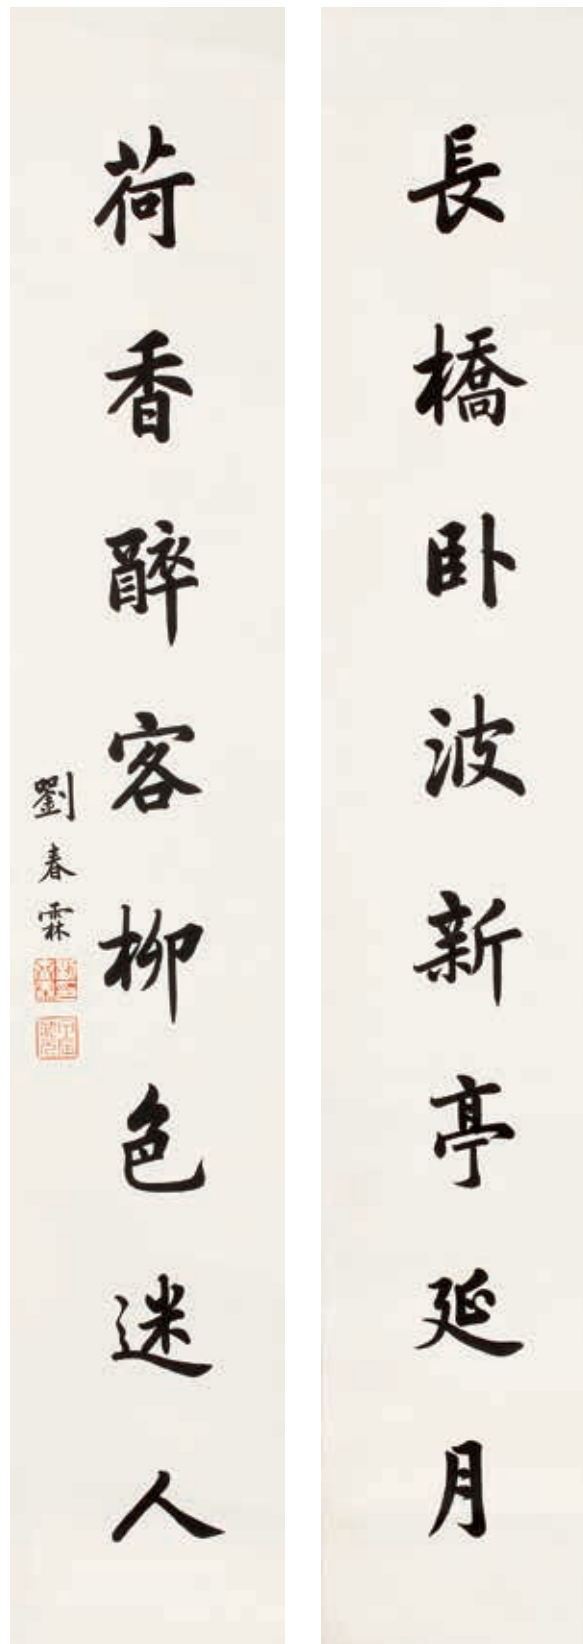 長橋卧波新亭延月
荷香醉客柳色迷人
劉春霖